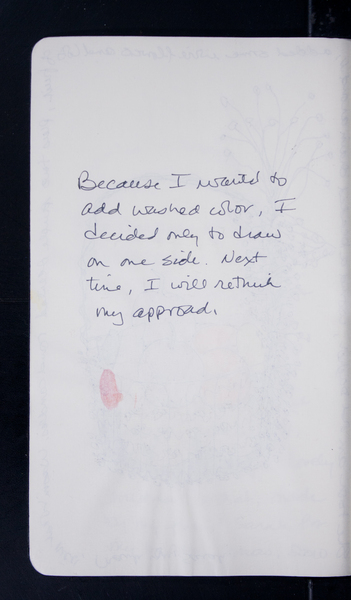 Because I wanted to
add washed color, I
decided only to draw
on one side. Next
time, I will rethink
my approach.